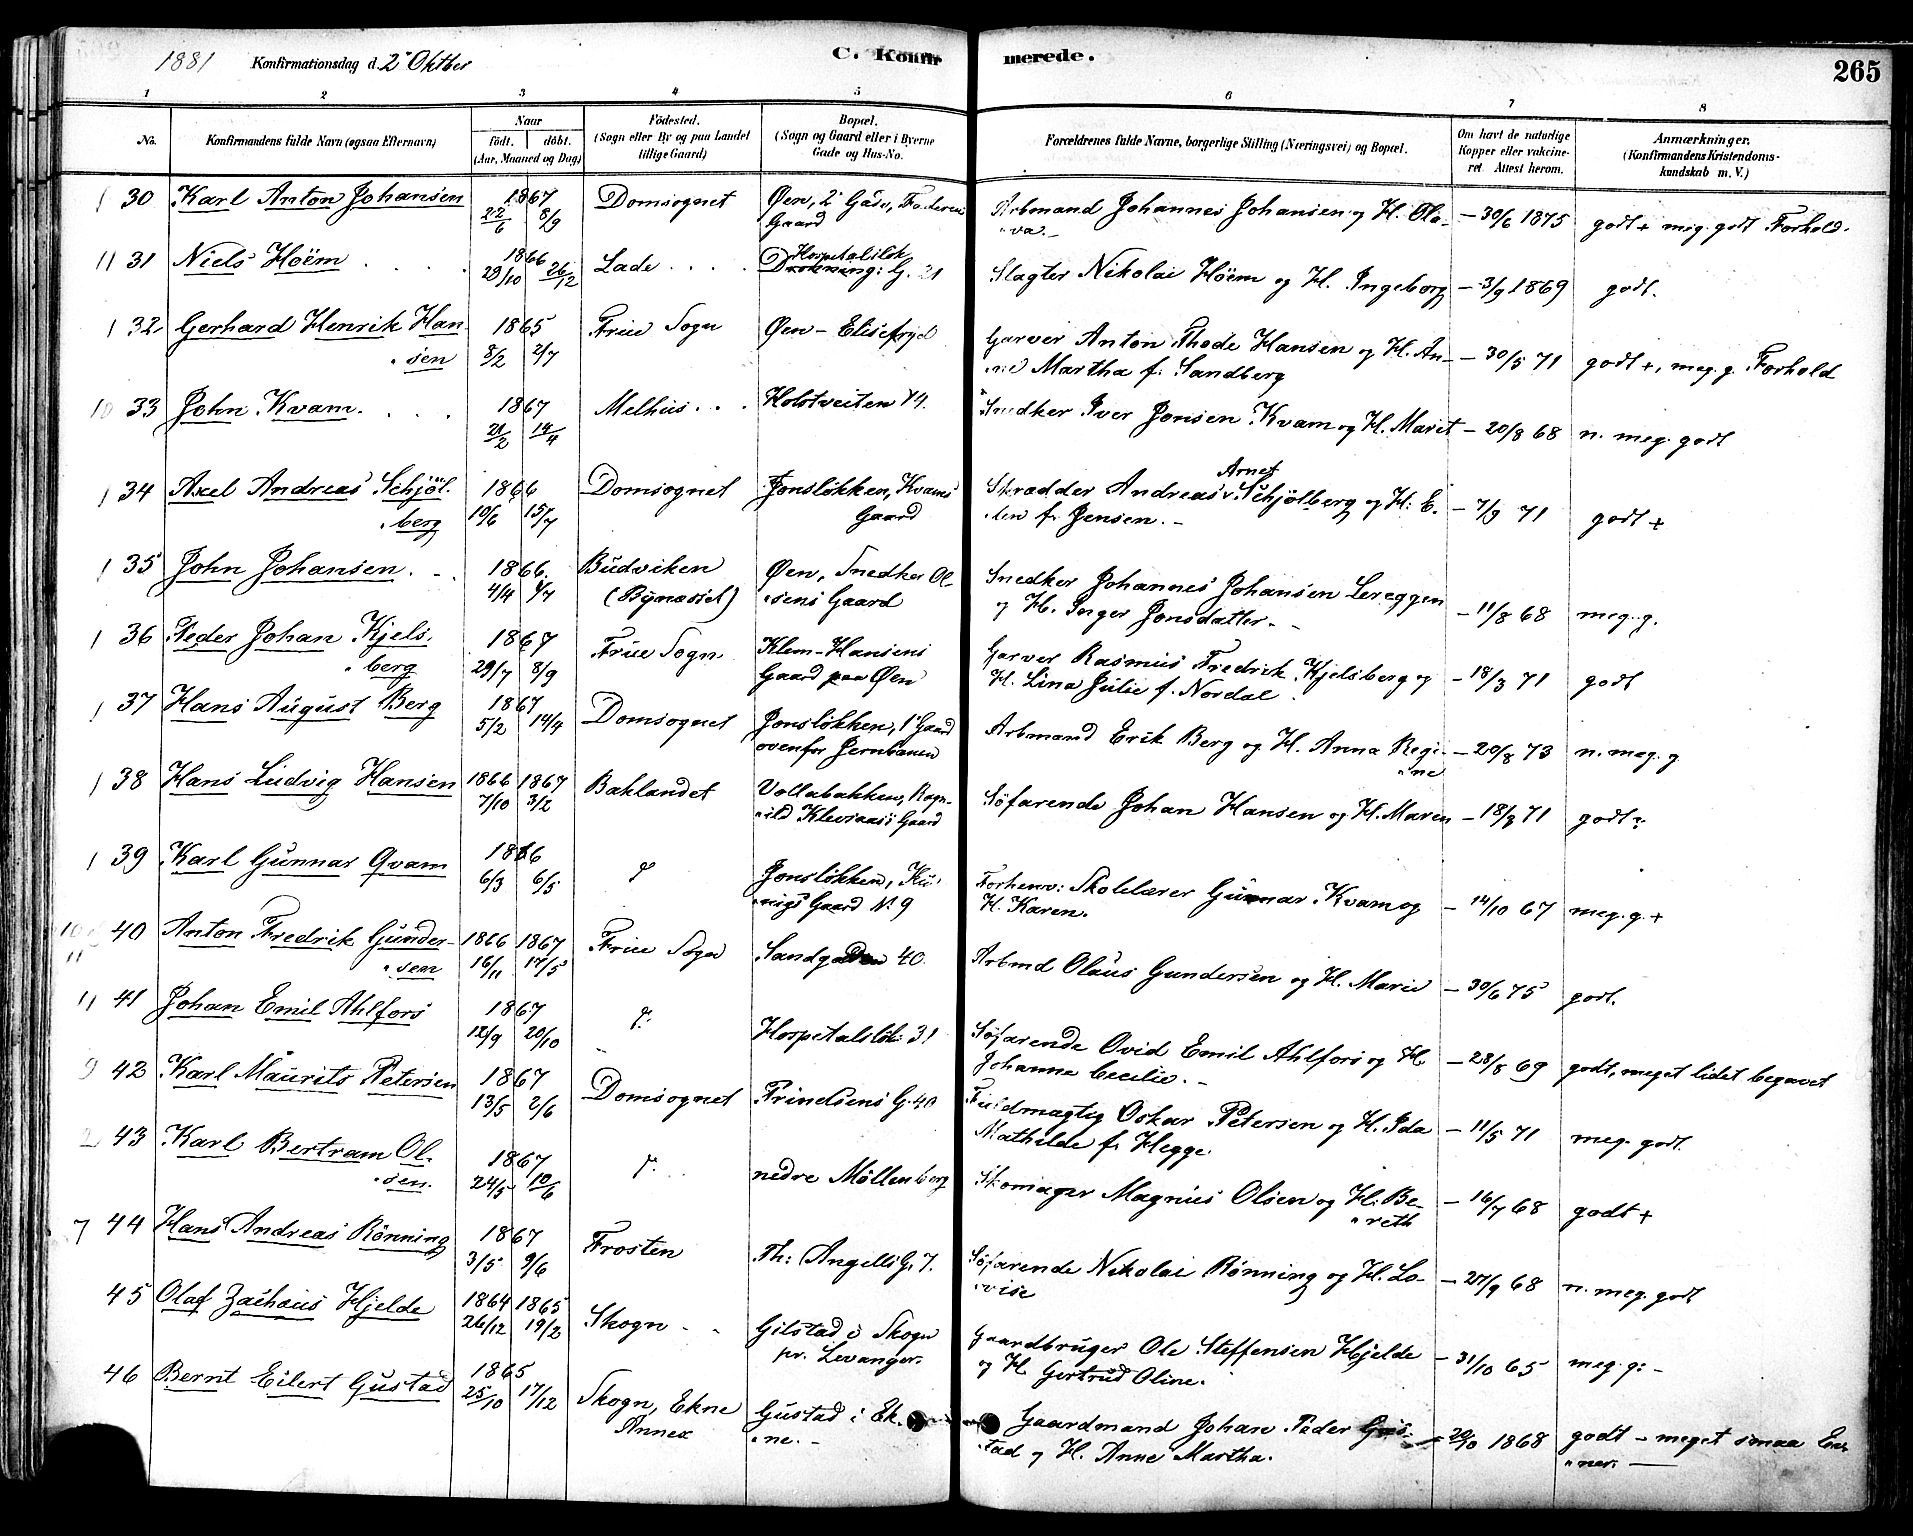 1881 Konfirmationsdag d. 2 Oktber C. Konfirmerede. 265
1 2 3 4 5 6 7 8
No. Konfirmandens fulde Navn (ogsaa Efternavn) Naar født. døbt. (Aar, Maaned og Dag) Fødested. (Sogn eller By og paa Landet tillige Gaard) Bopæl. (Sogn og Gaard eller i Byerne Gade og Hus-No. Forældrenes fulde Navne, borgerlige Stilling (Næringsvei) og Bopæl. Om havt de naturlige Kopper eller vakcineret. Attest herom. Anmærkninger. (Konfirmandens Kristendomskundskab m. V.)
1 30 Karl Anton Johansen 1867 22/6 8/9 Domsognet Øen, 2 Gade, Faderens Gaard Arbmand Johannes Johansen og H. Olava. - 30/6 1875 godt + meg. godt Forhold.
11 31 Niels Höem 1866 29/10 26/12 Lade Hospetalslök G. 21 Slagter Nikolai Höem og H. Ingeborg - 3/9 1869 godt.
1 32 Gerhard Henrik Hansen 1865 8/2 2/7 Frue Sogn Øen - Elisefryd Garver Anton Thode Hansen og H. Anne Martha f. Sandberg - 30/5 71 godt +, meg. g. Forhold
10 33 John Kvam. 1867 21/2 14/4 Melhus Holstveiten 19. Snedker Iver Jonsen Kvam og H. Marit - 20/8 68 n. meg. godt
1 34 Axel Andreas Schjölberg 1866 10/6 15/7 Domsognet Jonsløkken, Kvams Gaard Skrædder Andreas Arnt Schjölberg og H. Elen f. Jensen. - 7/9 71 godt +
1 35 John Johansen 1866. 4/4 1/7 Budviken (Bynæsset) Øen, Snedker Olsens Gaard Snedker Johannes Johansen Lereggen og H. Inger Jonsdatter. - 11/8 68 meg. g.
1 36 Peder Johan Kjelsberg 1867 29/7 8/9 Frue Sogn Klem-Hansens Gaard paa Øen Garver Rasmus Fredrik Kjelsberg og H. Lina Julie f. Nordal - 18/3 71 godt
1 37 Hans August Berg 1867 5/2 14/4 Domsognet Jonsløkken, 1 Gaard ovenfor Jernbanen Arbmand Erik Berg og H. Anna Regine - 20/8 73 n. meg. g
1 38 Hans Ludvig Hansen 1866 7/10 1867 3/2 Baklandet Vollabakken, Ragnild Gaard Söfarende Johan Hansen og H. Maren - 18/3 71 godt
1 39 Karl Gunnar Qvam 1866 6/3 6/5 Jonsløkken, Kunigs Gaard N. 9 Forhenv: Skolelærer Gunnar Kvam og H. Karen. - 14/10 67 meg. g. +
40 Anton Fredrik Gundersen 1866 16/11 1867 17/5 Frue Sogn Sandgaden 40 Arbmd Olaus Gundersen og H. Marie - 30/6 75 godt.
11 41 Johan Emil Ahlfors 1867 12/9 20/10 Hospetalslök: 31 Söfarende Ovid Emil Ahlfors og H. Johanne Cecilie. - 28/8 69 godt, meget lidet begavet
9 42 Karl Maurits Petersen 1867 13/5 2/6 Domsognet Prindsens G. 40 Fuldmægtig Oskar Petersen og H. Ida Mathilde f. Hegge. - 11/5 71 meg. godt.
2 43 Karl Bertram Olsen. 1867 24/5 10/6 nedre Möllenberg Skomager Magnus Olsen og H. Bereth - 16/7 68 godt +
7 44 Hans Andreas Rönning 1867 3/5 9/6 Frosten Th: Angells G. 7. Söfarende Nikolai Rönning og H. Lovise - 27/9 68 n. meg. godt
45 Olaf Zachæus Hjelde 1864 26/12 1865 19/2 Skogn Gilstad i Skogn pr. Levanger. Gaardbruger Ole Steffensen Hjelde og H. Gertrud Oline. - 31/10 65 meg. g. -
46 Bernt Eilert Gustad 1865 25/10 17/12 Skogn, Ekne Annex Gustad i Ekne. - Gaardmand Johan Peder Gustad og H. Anne Martha. - 20/10 1868 godt - meget smaa Evner. -